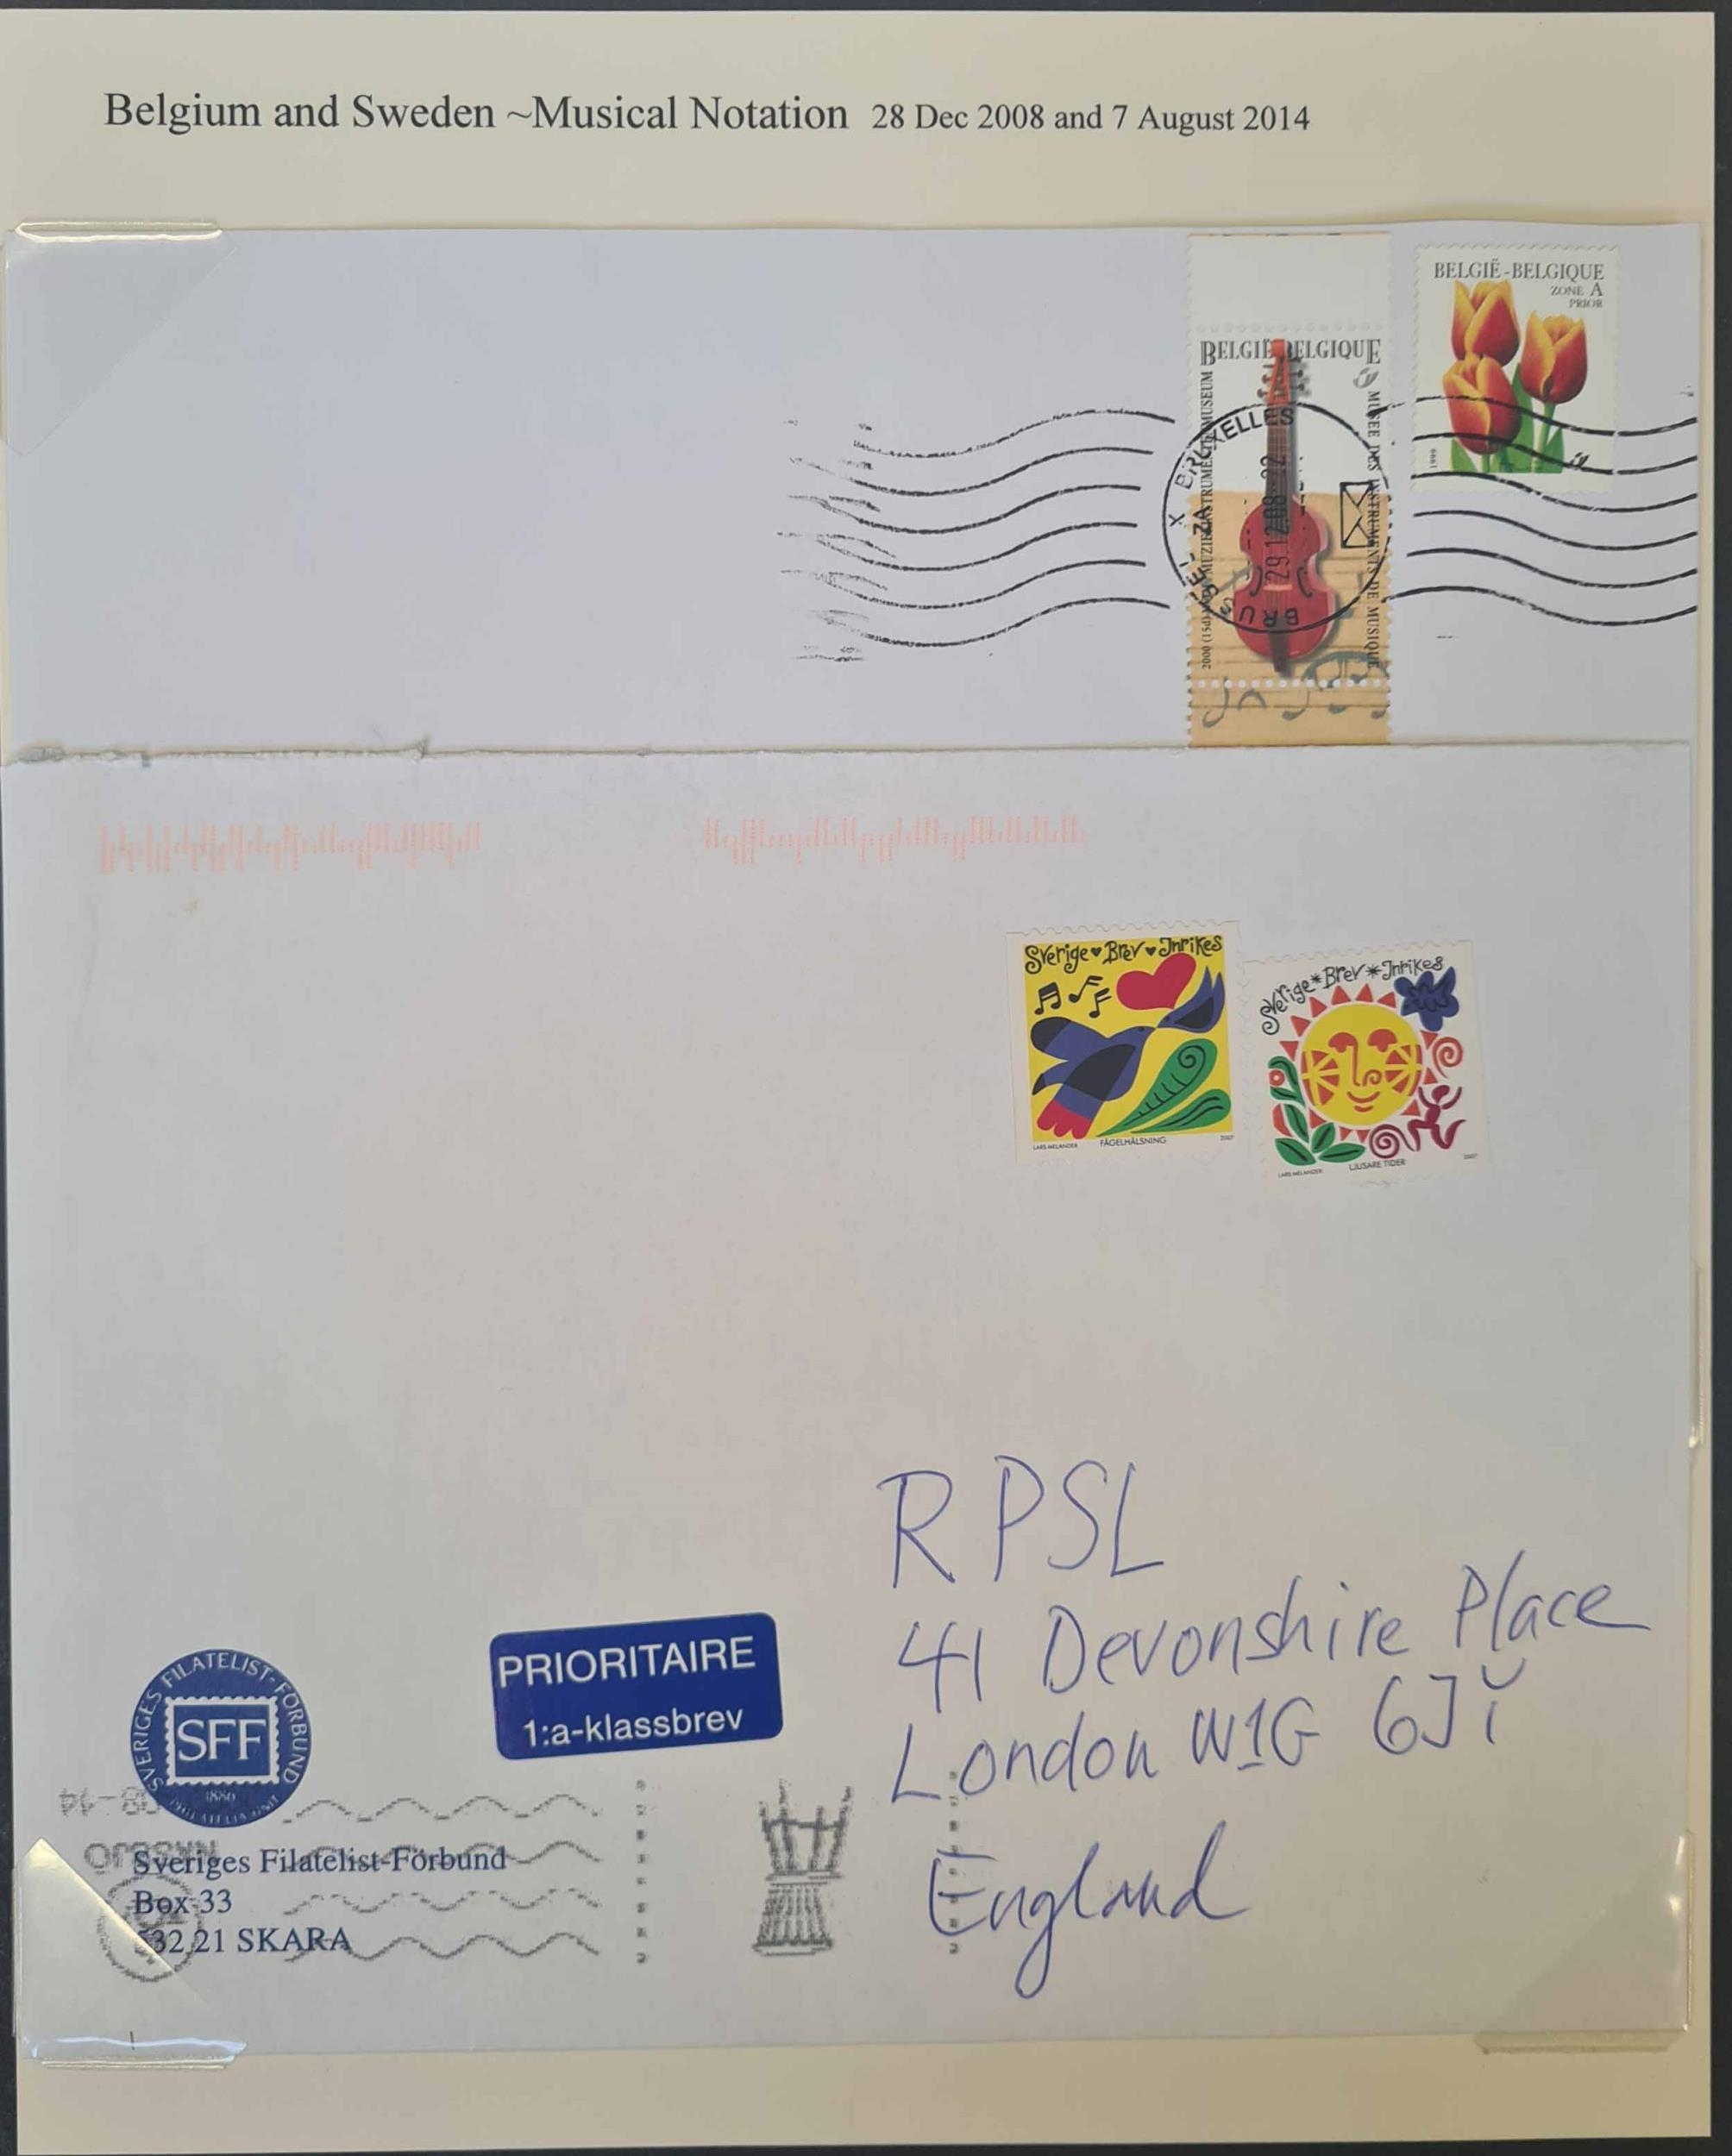 Belgium and Sweden ~Musical Notation 28 Dec 2008 and 7 August 2014
BELGIË-BELGIQUE
ZONE A
PRIOR
1999
BELGIË BELGIQUE
MUSEE DES INSTRUMENTS DE MUSIQUE
BRUXELLES X
29.12.08
Sverige Brev Inrikes
LARS MELANDER FÅGELHÄLSNING 2007
Sverige Brev Inrikes
LARS MELANDER LJUSARE TIDER 2007
RPSL
41 Devonshire Place
London W1G 6JY
England
PRIORITAIRE
1:a-klassbrev
SVERIGES FILATELIST-FÖRBUND
SFF
1886
Sveriges Filatelist-Förbund
Box 33
532 21 SKARA